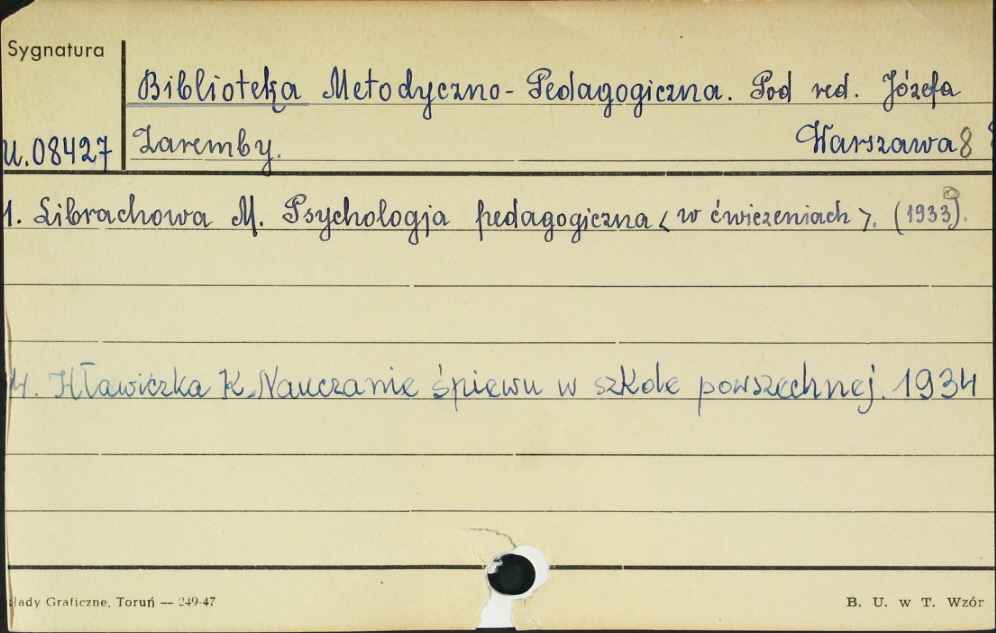 Sygnatura
Biblioteka Metodyczno-Pedagogiczna. Pod red. Józefa
U.08427 Zaremby. Warszawa 8
1. Librachowa M. Psychologja pedagogiczna < w ćwiczeniach >. (1933).
4. Hławiczka K. Nauczanie śpiewu w szkole powszechnej. 1934
łady Graficzne, Toruń — 249-47
B. U. w T. Wzór